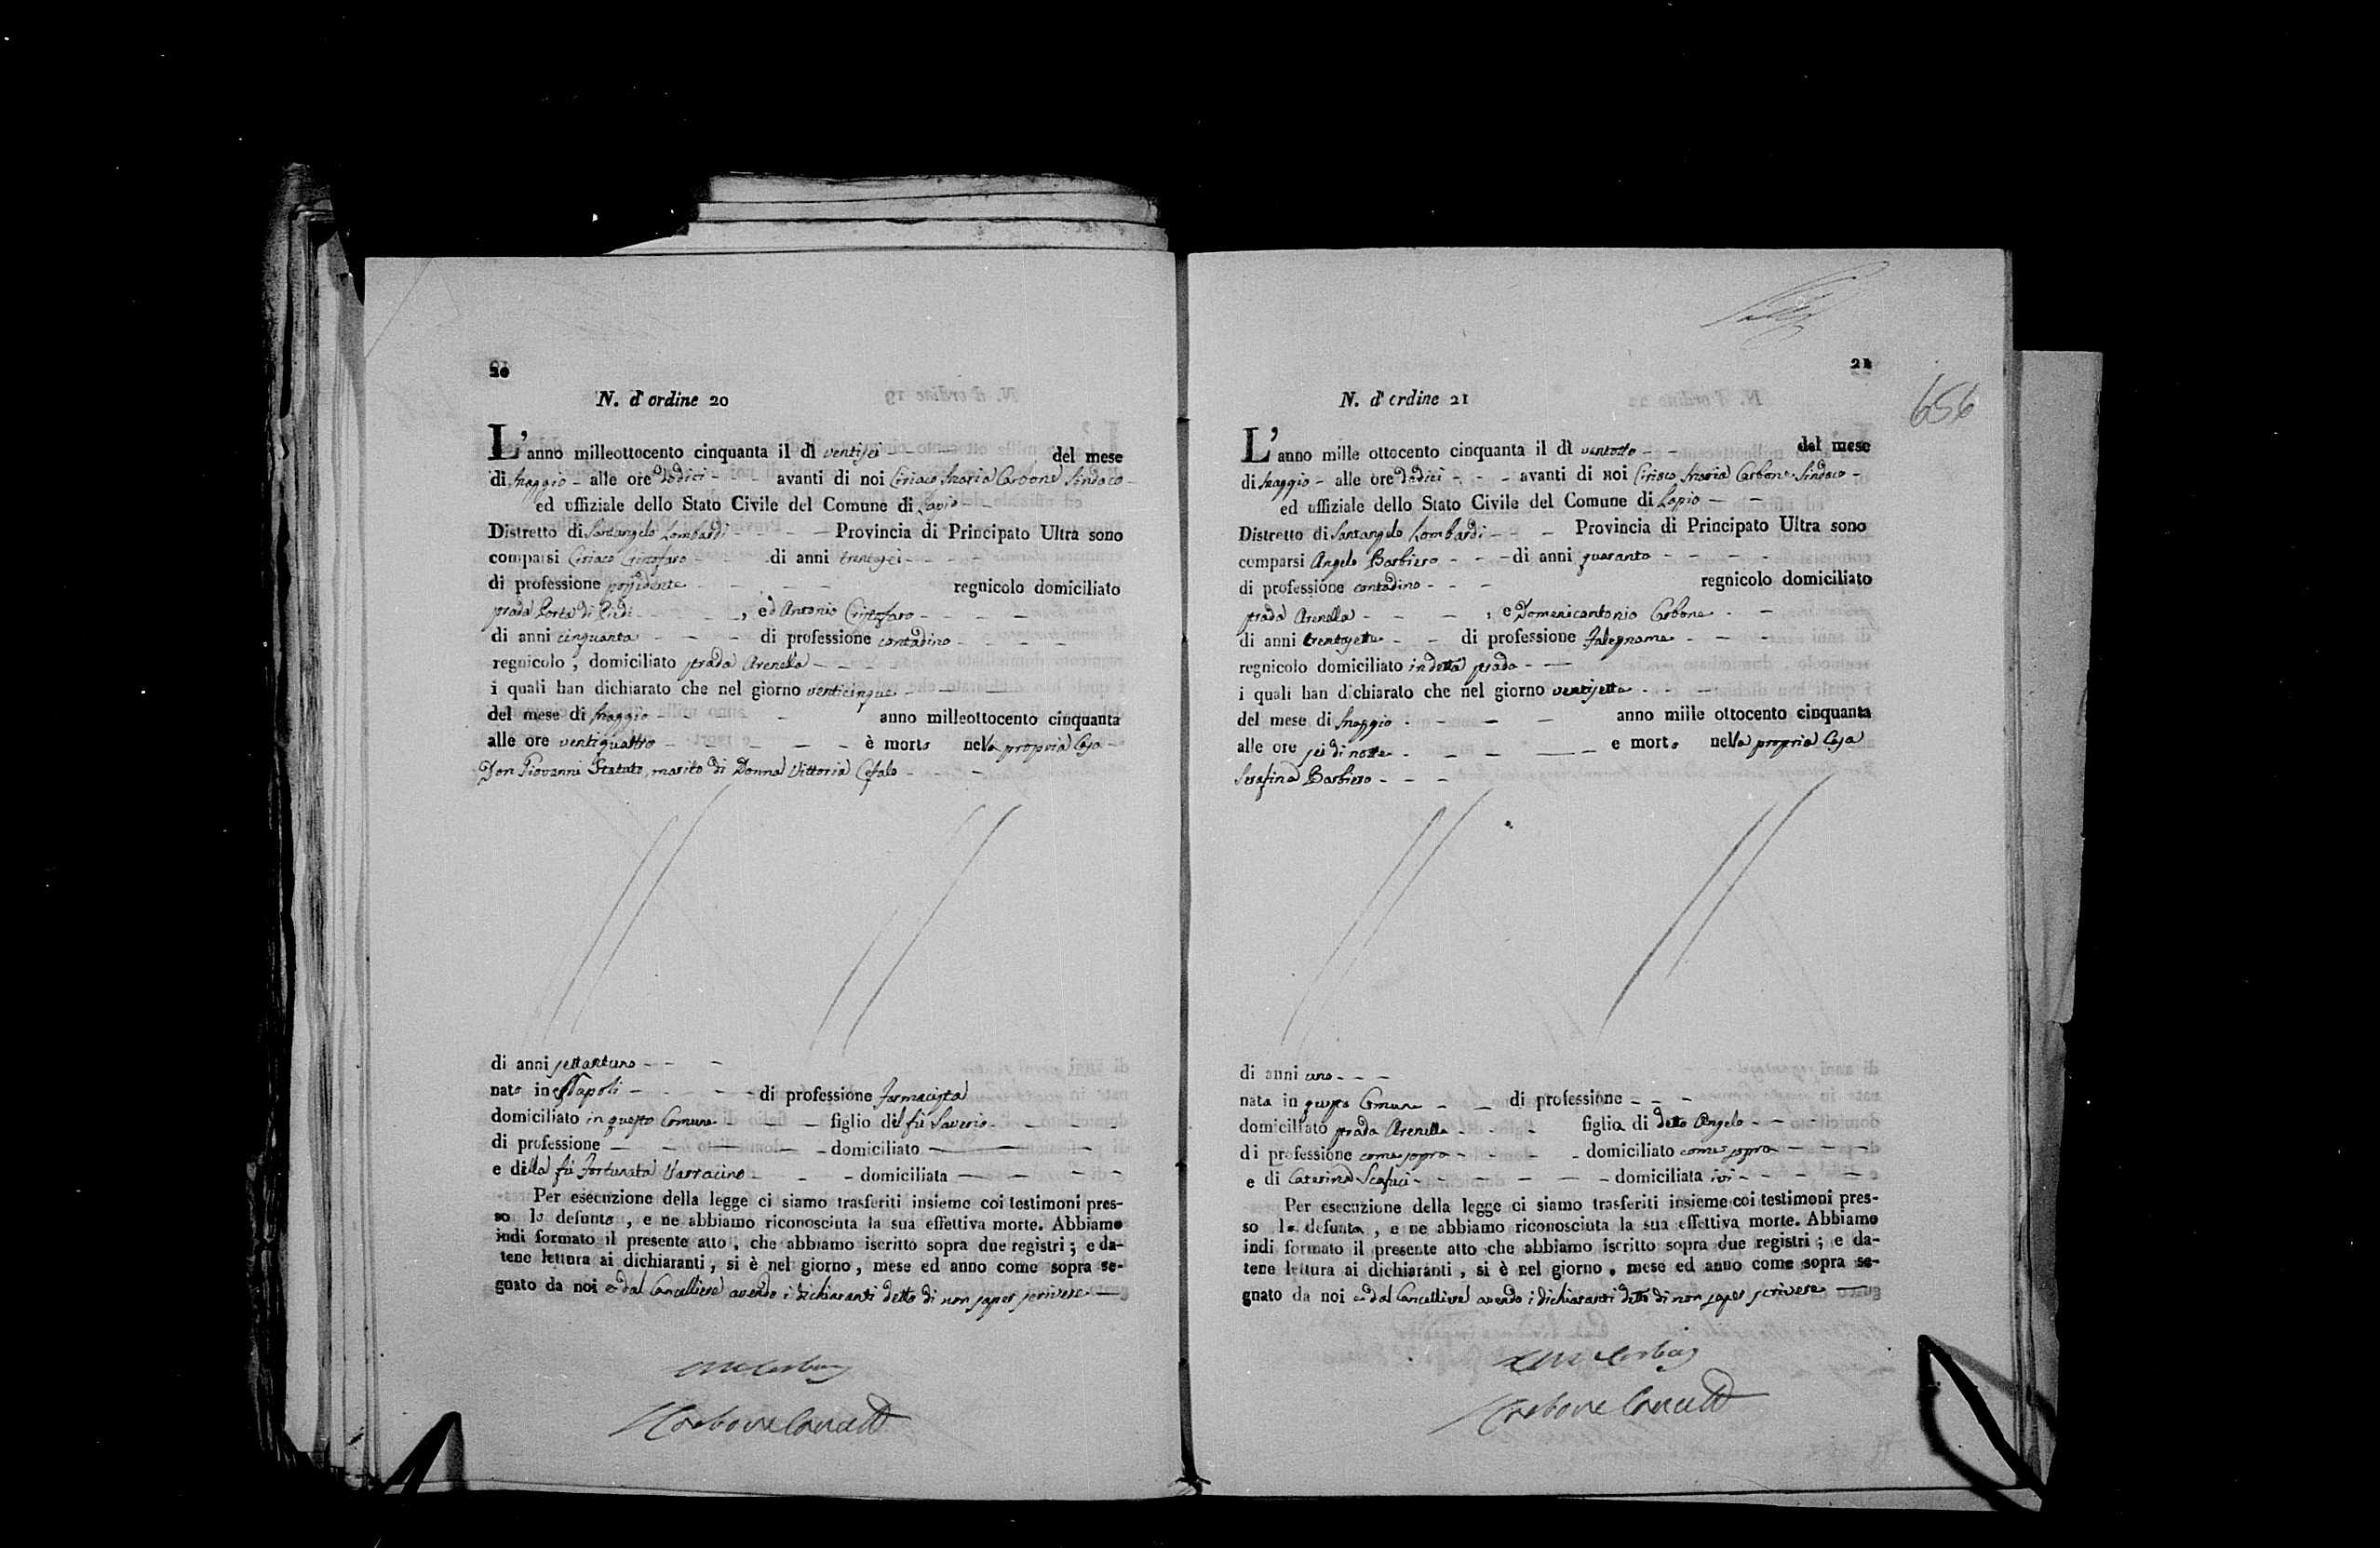 20
N. d'ordine 20
L'anno milleottocento cinquanta il dì ventisei - - - del mese
di Maggio - alle ore dodici - - - avanti di noi Ciriaco Maria Carbone Sindaco -
ed uffiziale dello Stato Civile del Comune di Lapio - -
Distretto di Santangelo Lombardi - - - - Provincia di Principato Ultra sono
comparsi Ciriaco Cristofaro - - - di anni trentasei - - - -
di professione possidente - - - - regnicolo domiciliato
strada Porta di Piedi - - - - , ed Antonio Cristofaro - - - -
di anni cinquanta - - - di professione contadino - - - -
regnicolo , domiciliato strada Arenella - - - -
i quali han dichiarato che nel giorno venticinque - - -
del mese di Maggio - - - anno milleottocento cinquanta
alle ore ventiquattro - - - - - è morto nella propria Casa -
Don Giovanni Statuto, marito di Donna Vittoria Cefalo - - -
di anni settantuno - - -
nato in Napoli - - - - - di professione Farmacista
domiciliato in questo Comune - - - figlio del fù Saverio - - - -
di professione - - - - - domiciliato -
e della fù Fortunata Varracino - - - domiciliata - - - -
Per esecuzione della legge ci siamo trasferiti insieme coi testimoni pres-
so lo defunto , e ne abbiamo riconosciuta la sua effettiva morte. Abbiamo
indi formato il presente atto , che abbiamo iscritto sopra due registri ; e da-
tene lettura ai dichiaranti , si è nel giorno , mese ed anno come sopra se-
gnato da noi e dal Cancelliere avendo i dichiaranti detto di non saper scrivere -
Carbone Cancell
21
656
N. d'ordine 21
L'anno mille ottocento cinquanta il dì ventotto - - del mese
di Maggio - alle ore dodici - - - avanti di noi Ciriaco Maria Carbone Sindaco -
ed uffiziale dello Stato Civile del Comune di Lapio - -
Distretto di Santangelo Lombardi - - - Provincia di Principato Ultra sono
comparsi Angelo Barbiero - - - di anni quaranta - - - -
di professione contadino - - - regnicolo domiciliato
strada Arenella - - - - , e Domenicantonio Carbone - -
di anni trentasette - - di professione Falegname - - -
regnicolo domiciliato in detta strada - -
i quali han dichiarato che nel giorno ventisette - - -
del mese di Maggio - - - - anno mille ottocento cinquanta
alle ore sei di notte - - - - - e morta nella propria Casa
Serafina Barbiero - - -
di anni uno - - -
nata in questo Comune - - di professione - - -
domiciliato strada Arenella - - - figlia di detto Angelo - - -
di professione come sopra - - - - domiciliato come sopra - - -
e di Caterina Scafuri - - - - - - domiciliata ivi - - - -
Per esecuzione della legge ci siamo trasferiti insieme coi testimoni pres-
so la defunta , e ne abbiamo riconosciuta la sua effettiva morte. Abbiamo
indi formato il presente atto che abbiamo iscritto sopra due registri ; e da-
tene lettura ai dichiaranti , si è nel giorno , mese ed anno come sopra se-
gnato da noi e dal Cancelliere avendo i dichiaranti detto di non saper scrivere -
Carbone Cancell